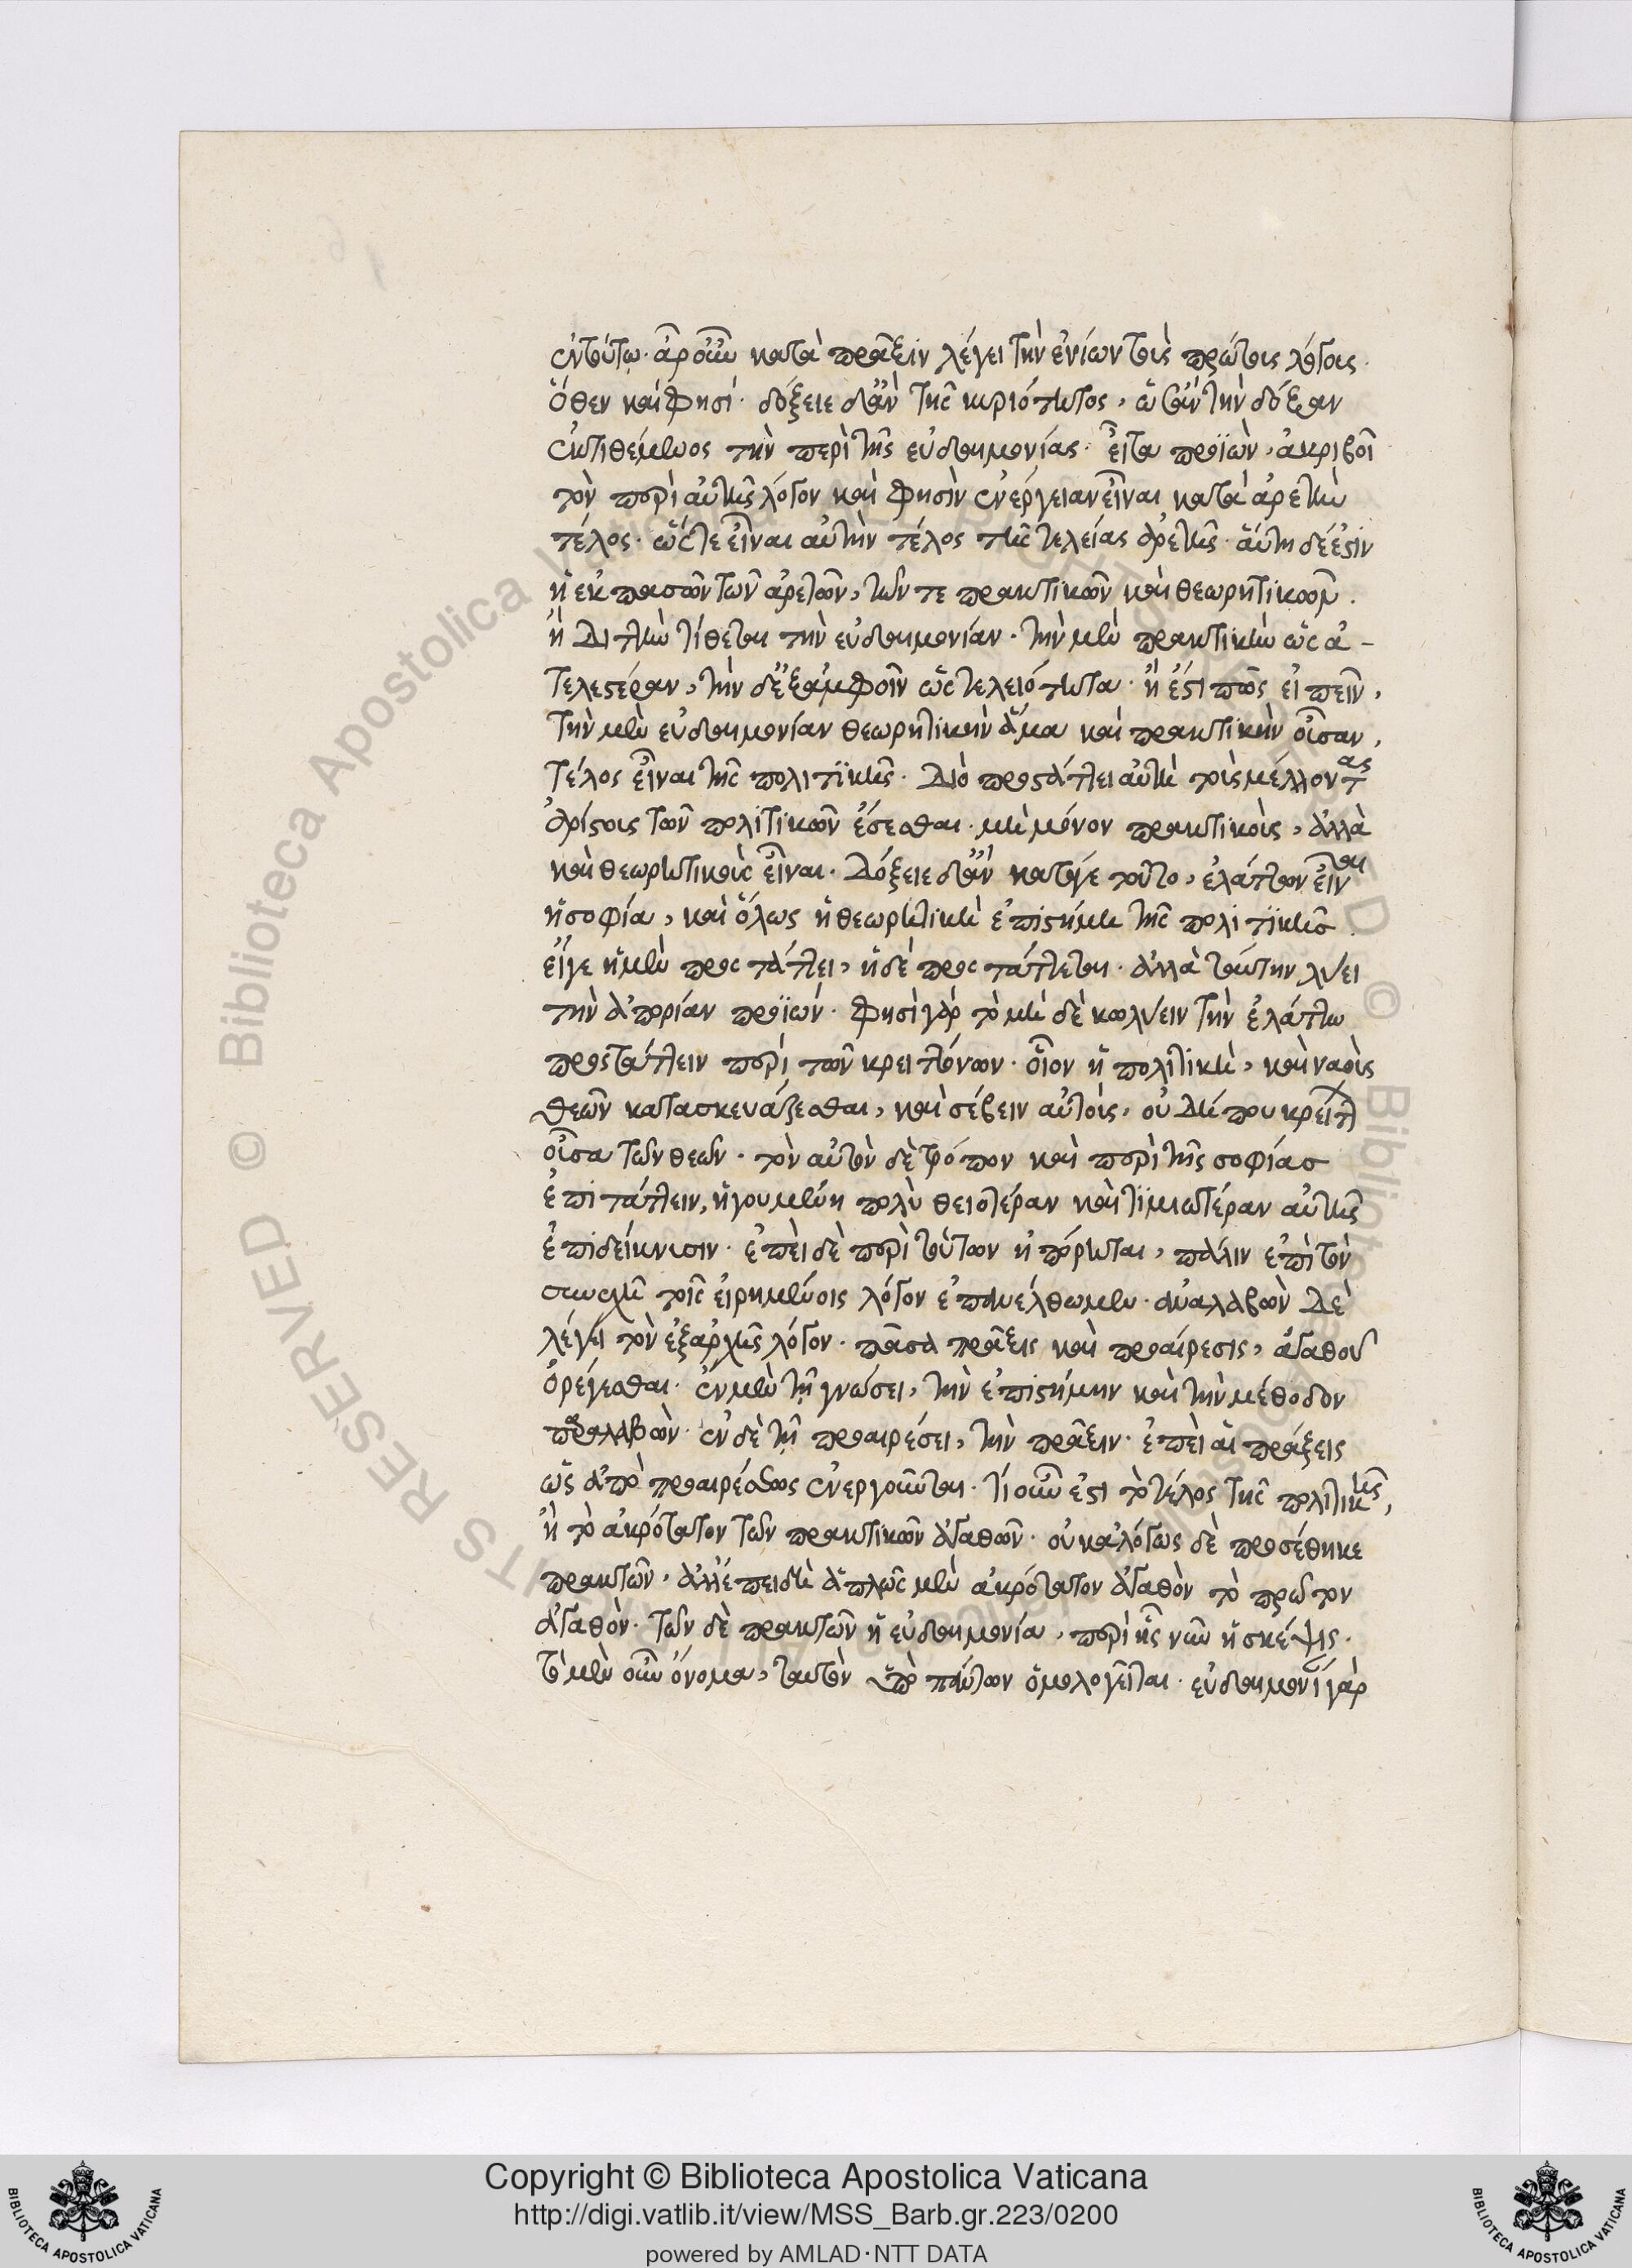 ἐν τούτω· ἆρ οὖν κατὰ πρᾶξιν λέγει τὴν ἐνίων τοῖς πρώτοις λόγοις.
ὅθεν καὶ φησί· δόξειε δ' ἂν τῆς κυριότητος, ὡσὰν τὴν δόξαν
ἐκτιθέμενος τὴν περὶ τῆς εὐδαιμονίας· εἶτα προϊὼν, ἀκριβοῖ
τὸν περὶ αὐτῆς λόγον καὶ φησὶν ἐνέργειαν εἶναι κατὰ ἀρετὴν
τέλος· ὥστε εἶναι αὐτὴν τέλος τῆς τελείας ἀρετῆς· αὕτη δέ ἐστιν
ἡ ἐκ πασῶν τῶν ἀρετῶν, τῶν τε πρακτικῶν καὶ θεωρητικῶν.
ἢ διττὴν τίθεται τὴν εὐδαιμονίαν· τὴν μὲν πρακτικὴν ὡς ἀ-
τελεστέραν, τὴν δ' ἐξ ἀμφοῖν ὡς τελειότητα· ἢ ἔστι πῶς εἰπεῖν,
τὴν μὲν εὐδαιμονίαν θεωρητικὴν ἅμα καὶ πρακτικὴν οὖσαν,
τέλος εἶναι τῆς πολιτικῆς· Διὸ προστάττει αὐτὴ τοῖς μέλλοντας
ἀρίστοις τῶν πολιτικῶν ἔσεσθαι· μὴ μόνον πρακτικοῖς, ἀλλὰ
καὶ θεωρητικοῖς εἶναι· Δόξειε δ' ἂν κατάγε τοῦτο, ἐλάττον εἶναι
ἡ σοφία, καὶ ὅλως ἡ θεωρητικὴ ἐπιστήμη τῆς πολιτικῆς.
εἴγε ἡ μὲν προστάττει, ἡ δὲ προστάττεται· ἀλλὰ ταύτην λύει
τὴν ἀπορίαν προϊών· φησὶ γὰρ τὸ μὴ δὲ κωλύειν τὴν ἐλάττω
προστάττειν περὶ τῶν κρειττόνων· οἷον ἡ πολιτικὴ, καὶ ναοὶς
θεῶν κατασκευάζεσθαι, καὶ σέβειν αὐτοὶς, οὐ δήπου κρείττ
οὖσα τῶν θεῶν· τὸν αὐτὸν δὲ τρόπον καὶ περὶ τῆς σοφίας
ἐπιτάττειν, ἡγουμένη πολὺ θειοτέραν καὶ τιμιωτέραν αὐτῆς
ἐπιδείκνυσιν· ἐπεὶ δὲ περὶ τούτων ἠπόρηται, πάλιν ἐπὶ τὸν
συνεχῆ τοῖς εἰρημένοις λόγον ἐπανέλθωμεν· ἀναλαβὼν Δὲ
λέγει τὸν ἐξαρχῆς λόγον· πᾶσα πρᾶξις καὶ προαίρεσις, ἀγαθοῦ
ὀρέγεσθαι· ἐν μὲν τῇ γνώσει, τὴν ἐπιστήμην καὶ τὴν μέθοδον
προσλαβὼν· ἐν δὲ τῇ προαιρέσει, τὴν πρᾶξιν· ἐπεὶ αἱ πράξεις
ὡς ἀπὸ προαιρέσεως ἐνεργοῦνται· τί οὖν ἐστι τὸ τέλος τῆς πολιτικῆς,
ἢ τὸ ἀκρότατον τῶν πρακτικῶν ἀγαθῶν· οὐκ ἀλόγως δὲ προσέθηκε
πρακτῶν· ἀλλ' ἐπειδὴ ἁπλῶς μὲν ἀκρότατον ἀγαθὸν τὸ πρῶτον
ἀγαθὸν· τῶν δὲ πρακτῶν ἡ εὐδαιμονία, περὶ ἧς νῦν ἡ σκέψις.
τὸ μὲν οὖν ὄνομα, ταυτὸν ὑπὸ πάντων ὁμολογεῖται· εὐδαιμονία γὰρ
Copyright © Biblioteca Apostolica Vaticana
http://digi.vatlib.it/view/MSS_Barb.gr.223/0200
powered by AMLAD·NTT DATA